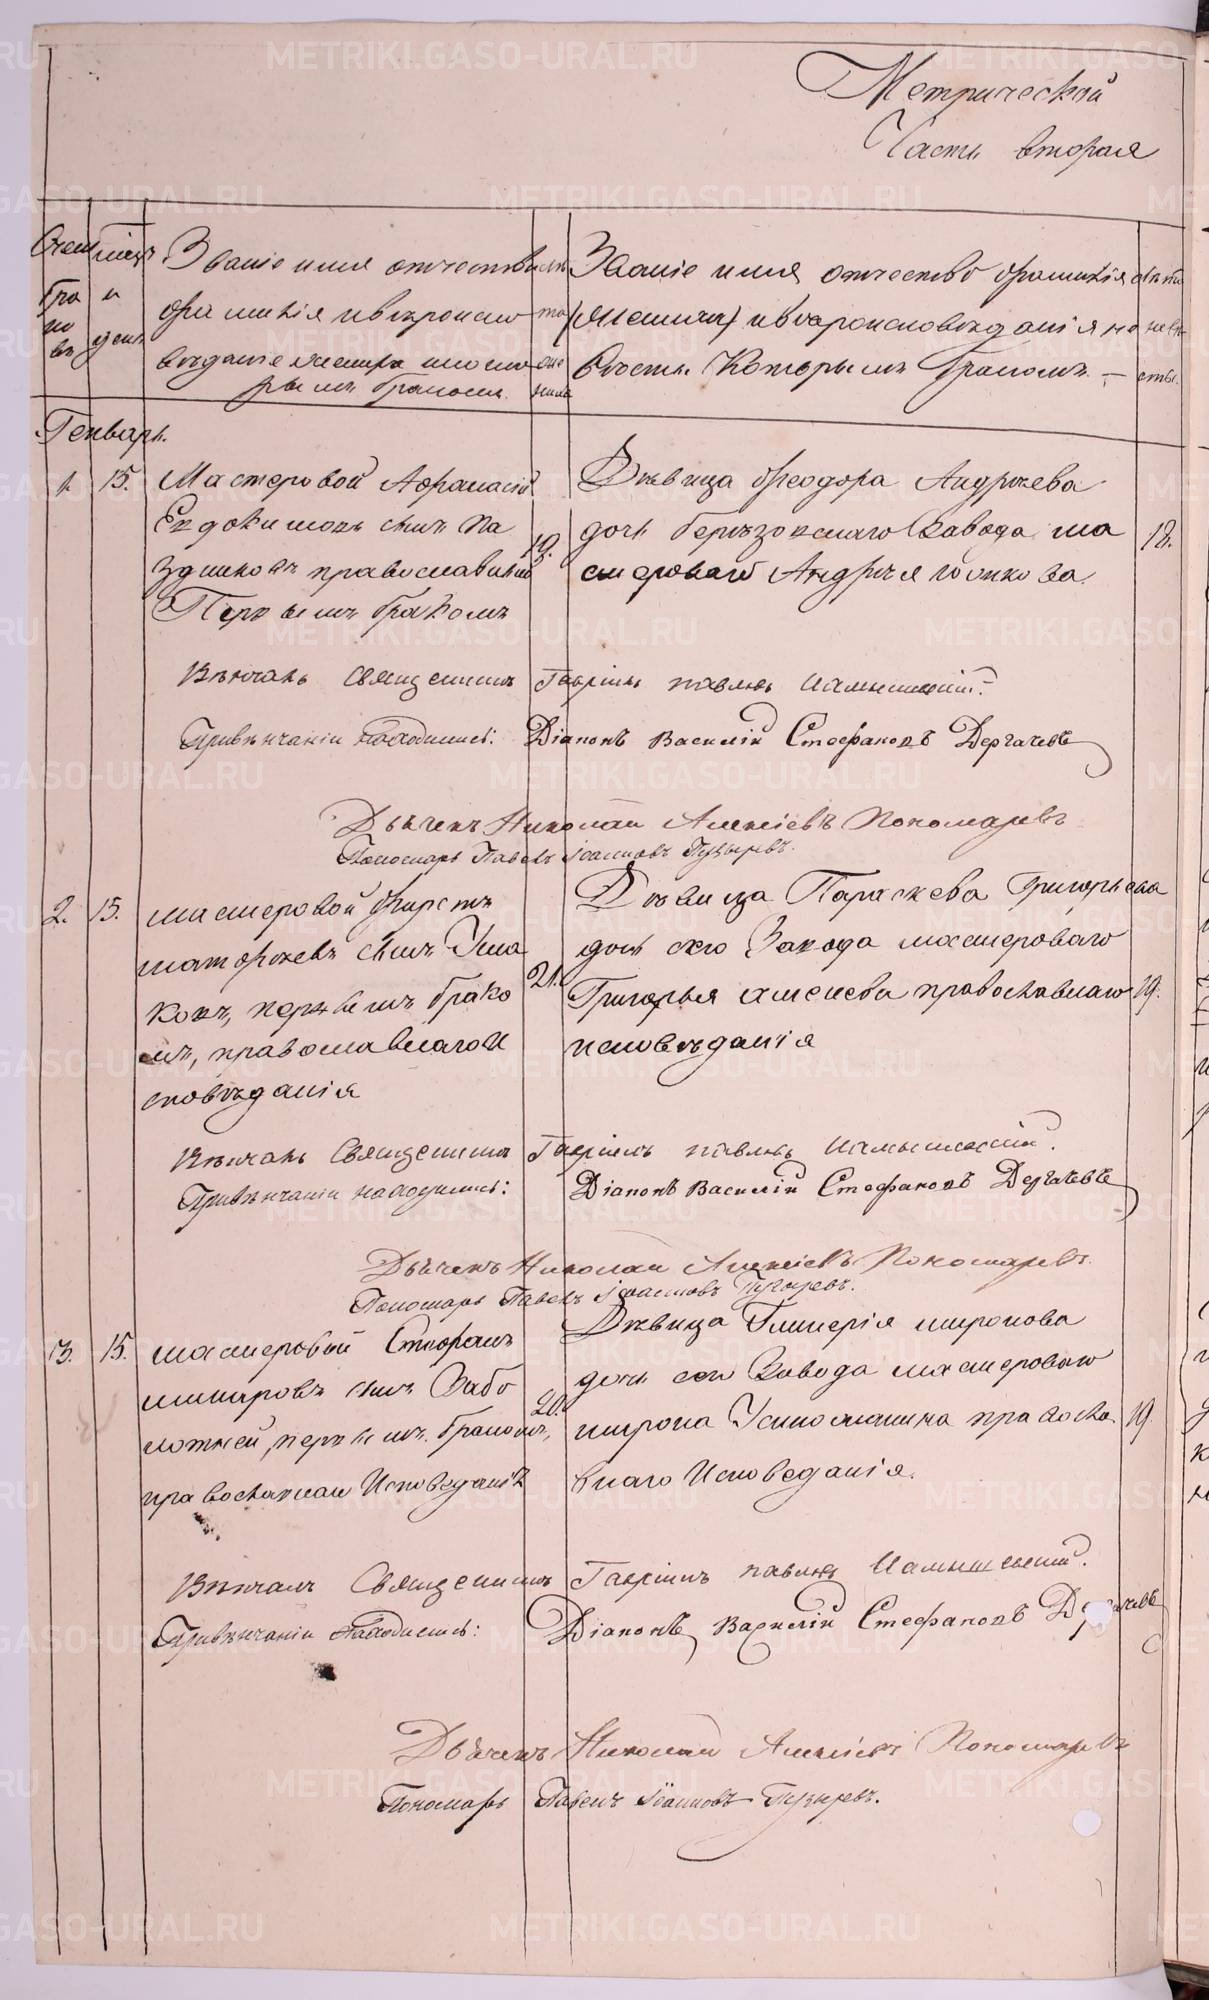 Метрической
Часть вторая
Счетъ браковъ
Мѣсяцъ и день
Званіе имя отчество
фамилія и вѣроиспо
вѣданіе жениха и кото
рымъ бракомъ.
лѣта жениха
Званіе имя отчество фамилія
и вѣроисповѣданія не
вѣсты. Которымъ бракомъ. —
лѣта невѣсты.
Генварь.
1. 15. Мастеровой Афанасій
Евдокимовъ сынъ
православный
Первымъ бракомъ
19.
Дѣвица Ѳеодора Андреева
дочь Березовскаго Завода ма
стероваго Андрея
18.
Вѣнчалъ Священникъ Гавріилъ Павловъ
При вѣнчаніи находились: Діаконъ Василій Стефановъ Дергачевъ
Дьячекъ Николай Алексіевъ Пономаревъ
Пономарь Павелъ Іоанновъ Пузыревъ.
2. 15. мастеровой Фирсъ
сынъ Уша
ковъ, первымъ брако
мъ, православнаго и
сповѣданія
21.
Дѣвица Параскева Григорьева
дочь сего Завода мастероваго
Григорья православнаго
исповѣданія
19.
Вѣнчалъ Священникъ Гавріилъ Павловъ
При вѣнчаніи находились: Діаконъ Василій Стефановъ Дергачевъ
Дьячекъ Николай Алексіевъ Пономаревъ.
Пономарь Павелъ Іоанновъ Пузыревъ.
3. 15. мастеровой Стефанъ
сынъ Забо
лотней, первымъ бракомъ,
православнаго Исповеданія
20.
Дѣвица Гликерія миронова
дочь сего Завода мастероваго
мирона правосла
внаго Исповеданія.
19.
Вѣнчалъ Священникъ Гавріилъ Павловъ
При вѣнчаніи находились: Діаконъ Василій Стефановъ Дергачевъ
Дьячекъ Николай Алексіевъ Пономаревъ
Пономарь Павелъ Іоанновъ Пузыревъ.
METRIKI.GASO-URAL.RU